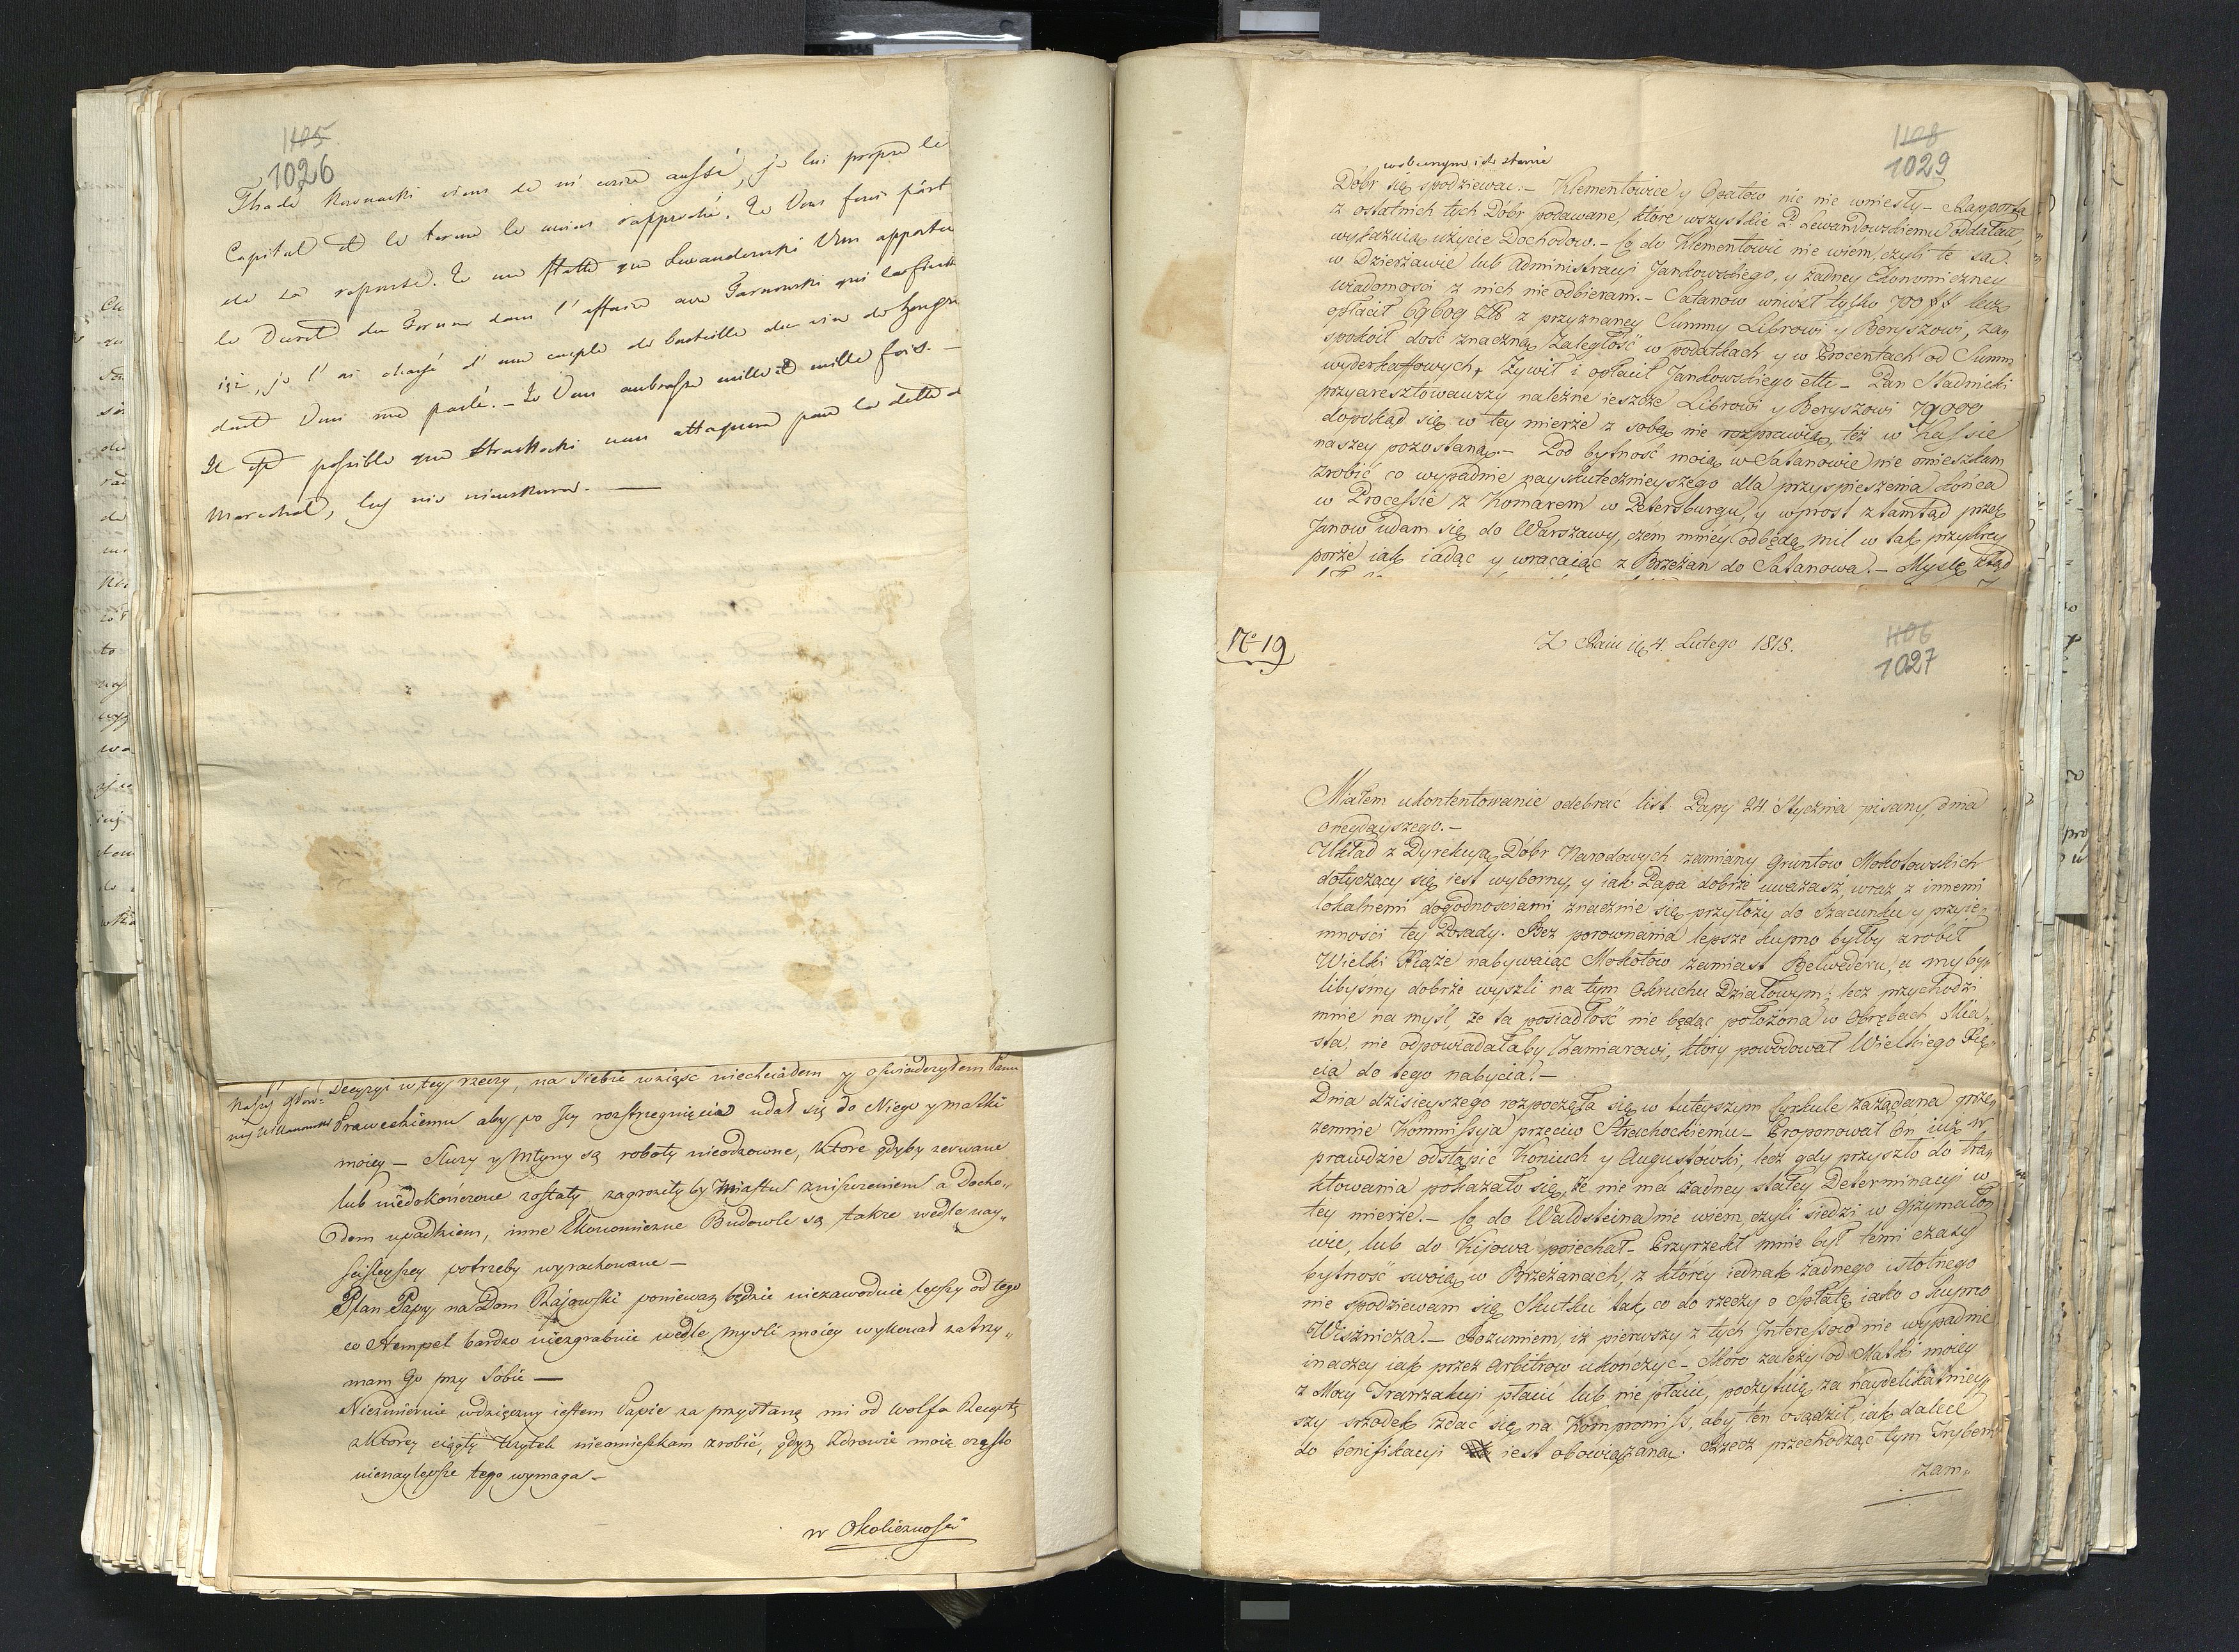 1105
1026
Thadé Kosnacki viens de m'ecrire aussi, je lui propose le
Capital et le terme le moins rapproché. Je Vous ferai part
de sa reponse. Je me flatte que Lewandowski Vous apporte
le Decret du Forum dans l'affaire avec Tarnowski qui
ici, je l'ai chargé d'une couple de bouteilles de vin de hongrie
dont Vous me parlé. – Je Vous embrasse mille et mille fois. –
Il est possible que Strachocki nous attaquera pour la dette d
Marechal, lecz nic nieuskura. —
Naszey Głow=
ney Willanowskiey
Decyzyi w tey rzeczy, na siebie wziąsc niechciałem y oswiadczyłem Panu
Praweckiemu aby po Jey rozstrzegnięcie udał się do Niego y matki
moiey – Sluzy y Młyny są roboty nieodzowne, ktore gdyby zerwane
lub niedokończone zostały zagroziłyby Miastu zniszczeniem a Docho„
dom upadkiem, inne Ekonomiczne Budowle są także wedle nay„
scisleyszey potrzeby wyrachowane –
Plan Papy na Dom Rajowski ponieważ będzie niezawodnie lepszy od tego
co Hempel bardzo niezgrabnie wedle mysli moiey wykonał zatrzy„
mam Go przy sobie —
Niezmiernie wdzięczny iestem Papie za przysłaną mi od Wolfa Receptę
z ktorey ciągły Użytek nieomieszkam zrobić, gdyż Zdrowie moie często
nienaylepsze tego wymaga –
w Okolicznosci
1108
1029
w obecnym ich stanie
Dóbr się spodziewac. – Klementowice y Opatow nic nie wniesły – Rapporta
z ostatnich tych Dóbr podawane, które wszystkie P. Lewandowskiemu oddałem,
wykazuią użycie Dochodow. – Co do Klementowic nie wiem czyli te są
w Dzierżawie lub Administracyi Jankowskiego, y żadney Ekonomiczney
wiadomosci z nich nie odbieram. – Satanow wniósł tylko 700 ## lecz
opłacił 69609 Zł z przyznaney Summy Librowi y Beryszowi, zas
spokoił dość znaczną Zaległość w podatkach y w Procentach od Summ
wyderkaffowych, Żywił i opłacił Jankowskiego ettc – Pan Stadnicki
przyaresztowawszy należne ieszcze Librowi y Beryszowi 79000
dopokąd się w tey mierze z sobą nie rozprawią, też w Kassie
naszey pozostaną – Pod bytność moią w Satanowie nie omieszkam
zrobić co wypadnie nayskutecznieyszego dla przyspieszenia końca
w Processie z Komarem w Petersburgu, y wprost ztamtąd przez
Janow udam się do Warszawy, czem mniey odbędę mil w tak przykrey
porze iak iadąc y wracaiąc z Brzeżan do Satanowa. – Myslę ztąd
No 19
Z Raiu d. 4. Lutego 1818.
1106
1027
Miałem ukontentowanie odebrać list Papy 24 Stycznia pisany, dnia
oneydayszego. –
Układ z Dyrekcyą Dóbr Narodowych zamiany gruntow Mokotowskich
dotyczący się iest wyborny, y iak Papa dobrze uważasz, wraz z innemi
lokalnemi dogodnosciami znacznie się przyłoży do Szacunku y przyie„
mności tey Posady. Bez porownania lepsze kupno byłby zrobił
Wielki Xiąże nabywaiąc Mokotow zamiast Belwederu, a my by„
libysmy dobrze wyszli na tym Okruchu Działowym; lecz przychodzi
mnie na mysl, że ta posiadłość nie będąc położona w Obrębach Mia„
sta, nie odpowiadałaby Zamiarowi, ktory powodował Wielkiego Xię„
cia do tego nabycia. –
Dnia dzisieyszego rozpoczęła się w tuteyszym Cyrkule zażądana prze„
zemnie Kommissya przeciw Strachockiemu – Proponował On iuż w
prawdzie odstąpić Koniuch y Augustowki, lecz gdy przyszło do tra„
ktowania pokazało się, że nie ma żadney stałey Determinacyi w
tey mierze. – Co do Waldsteina nie wiem, czyli siedzi w Grzymało„
wie, lub do Kijowa poiechał – Przyrzekł mnie był temi czasy
bytność swoią w Brzeżanach, z ktorey iednak żadnego istotnego
nie spodziewam się Skutku tak co do rzeczy o Spłatę iako o kupno
Wisznicza. – Rozumiem, iż pierwszy z tych Interessow nie wypadnie
inaczey iak przez Arbitrow ukończyć – Skoro zależy od Matki moiey
z Mocy Tranzakcyi płacić lub nie płacić, poczytuię za naydelikatniey„
szy srzodek zdać się na Kompromiss, aby ten osądził, iak dalece
do bonifikacyi iest obowiązaną. Rzecz przechodząc tym Trybem
zam„